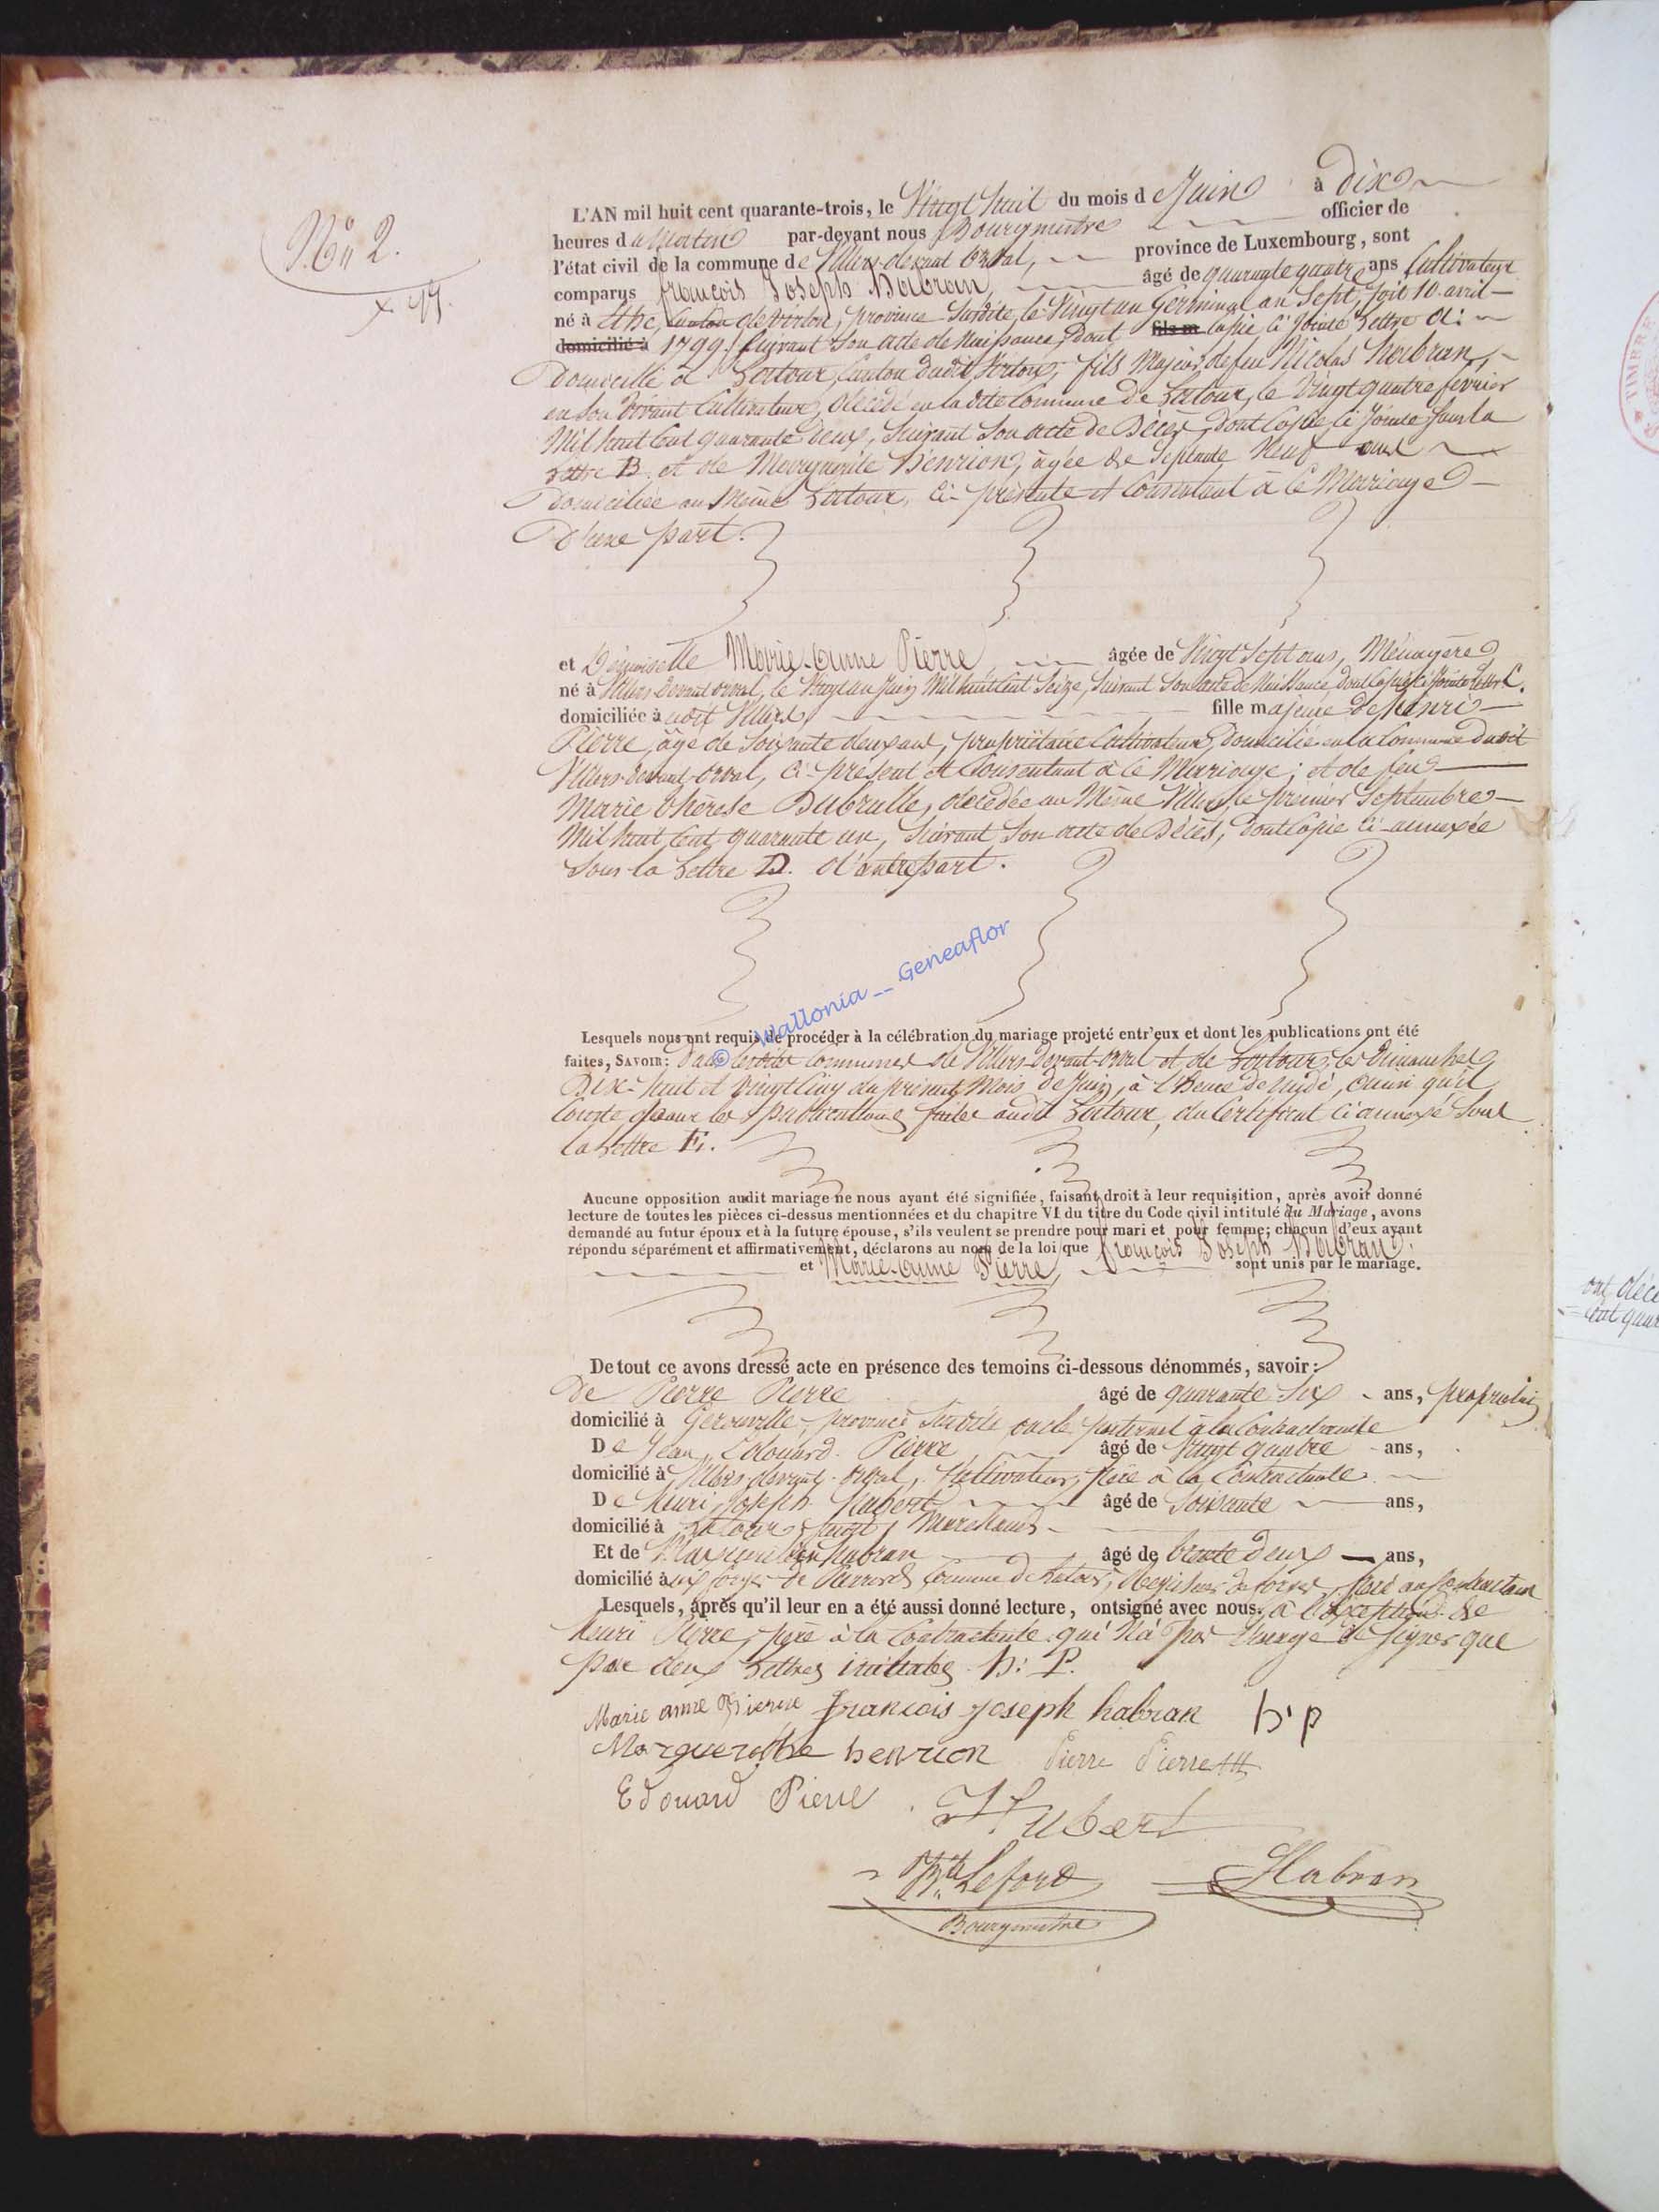 N.o 2.
L'AN mil huit cent quarante-trois, le Vingt huit du mois de Juin à Dix
heures du Matin par-devant nous Bourgmestre officier de
l'état civil de la commune de Villers-devant Orval, province de Luxembourg, sont
comparus françois Joseph Habran, âgé de quarante quatre ans Cultivateur
né à Ethe, Canton de Virton, province Susdite, le Vingt un Germinal an Sept, soit 10 avril
domicilié à 1799. suivant son acte de Naissance, dont copie ci Jointe Lettre A:
Domicilié à Latour, Canton dudit Virton, fils Majeur de feu Nicolas Habran,
en son Vivant Cultivateur, décédé en la dite Commune de Latour, le Vingt quatre février
Mil huit Cent quarante deux, Suivant Son acte de Décès, dont Copie ci Jointe sous la
Lettre B. et de Marguerite Henrion, âgée de Septante Neuf ans
domiciliée au Même Latour, Ci-présente et Consentant à Ce Mariage
D'une part.
et Demoiselle Marie-Anne Pierre, âgée de Vingt Sept ans, Ménagère
né à Villers-devant Orval, le Vingt un Juin Mil huit Cent Seize, Suivant Son acte de Naissance, dont Copie ci Jointe Lettre C.
domiciliée à audit Villers, fille majeure de Henri
Pierre, âgé de Soixante deux ans, propriétaire Cultivateur, domicilié en la Commune dudit
Villers-devant-Orval, Ci-présent et Consentant à Ce Mariage; et de feue
Marie Thérèse Dubrulle, décédée au Même Villers, le premier Septembre
Mil huit Cent quarante un, Suivant Son acte de Décès, dont Copie ci-annexée
Sous la Lettre D. d'autre part.
© Wallonia __ Geneaflor
Lesquels nous ont requis de procéder à la célébration du mariage projeté entr'eux et dont les publications ont été
faites, SAVOIR: Dans les dites Communes de Villers-devant-Orval et de Latour, les Dimanches
Dix-huit et Vingt Cinq du présent Mois de Juin, à l'Heure de Midi, ainsi qu'il
Conste pour les publications faites audit Latour, du Certificat Ci annexé Sous
la Lettre E.
Aucune opposition audit mariage ne nous ayant été signifiée, faisant droit à leur requisition, après avoir donné
lecture de toutes les pièces ci-dessus mentionnées et du chapitre VI du titre du Code civil intitulé du Mariage, avons
demandé au futur époux et à la future épouse, s'ils veulent se prendre pour mari et pour femme; chacun d'eux ayant
répondu séparément et affirmativement, déclarons au nom de la loi que françois Joseph Habran
et Marie-Anne Pierre, sont unis par le mariage.
De tout ce avons dressé acte en présence des temoins ci-dessous dénommés, savoir:
De Pierre Pierre âgé de quarante Six ans, propriétaire
domicilié à Gérouville, province Susdite, oncle paternel à la Contractante
De Jean Edouard Pierre âgé de Vingt quatre ans,
domicilié à Villers-devant-Orval, Cultivateur, frère à la Contractante
De Henri Joseph Hubert âgé de Soixante ans,
domicilié à Latour Susdit, Marchand
Et de Maximilien Habran âgé de trente deux ans,
domicilié aux forges de Pierrard Commune de Latour, Régisseur de forges, frère au Contractant
Lesquels, après qu'il leur en a été aussi donné lecture, ont signé avec nous. à l'Exception de
Henri Pierre, père à la Contractante qui N'a pas l'usage de signer que
par deux Lettres initiales. h: P.
Marie anne Pierre françois joseph habran h. p
Marguerithe henrion Pierre Pierre
Edouard Pierre Hubert
Lefort Habran
Bourgmestre